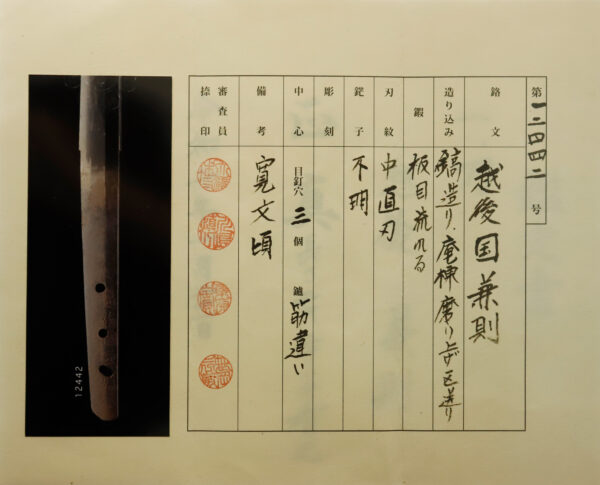 第一二四四二号
銘文 越後国兼則
造り込み 鎬造り、庵棟 磨り上げ 区送り
鍛 板目流れる
刃紋 中直刃
鋩子 不明
彫刻
中心 目釘穴 三個 鑢 筋違い
備考 寛文頃
審査員 捺印
12442